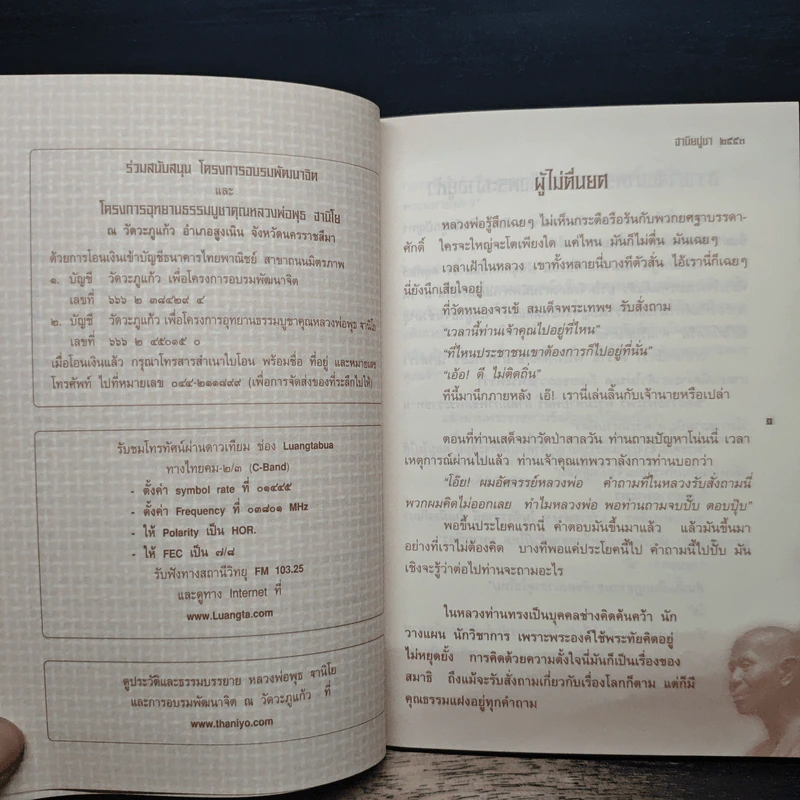 ร่วมสนับสนุน โครงการอบรมพัฒนาจิต
และ
โครงการอุทยานธรรมบูชาคุณหลวงพ่อพุธ ฐานิโย
ณ วัดวะภูแก้ว อำเภอสูงเนิน จังหวัดนครราชสีมา
ด้วยการโอนเงินเข้าบัญชีธนาคารไทยพาณิชย์ สาขาถนนมิตรภาพ
๑. บัญชี วัดวะภูแก้ว เพื่อโครงการอบรมพัฒนาจิต
เลขที่ ๖๖๖ ๒ ๓๘๔๒๙ ๔
๒. บัญชี วัดวะภูแก้ว เพื่อโครงการอุทยานธรรมบูชาคุณหลวงพ่อพุธ ฐานิโย
เลขที่ ๖๖๖ ๒ ๔๕๐๑๕ ๐
เมื่อโอนเงินแล้ว กรุณาโทรสารสำเนาใบโอน พร้อมชื่อ ที่อยู่ และหมายเลข
โทรศัพท์ ไปที่หมายเลข ๐๔๔-๒๑๑๘๙๙ (เพื่อการจัดส่งของที่ระลึกไปให้)
รับชมโทรทัศน์ผ่านดาวเทียม ช่อง Luangtabua
ทางไทยคม-๒/๓ (C-Band)
- ตั้งค่า symbol rate ที่ ๐๑๔๔๕
- ตั้งค่า Frequency ที่ ๐๓๘๐๑ MHz
- ให้ Polarity เป็น HOR.
- ให้ FEC เป็น ๗/๘
รับฟังทางสถานีวิทยุ FM 103.25
และดูทาง Internet ที่
www.Luangta.com
ดูประวัติและธรรมบรรยาย หลวงพ่อพุธ ฐานิโย
และการอบรมพัฒนาจิต ณ วัดวะภูแก้ว ที่
www.thaniyo.com
ฐานิยปูชา ๒๕๕๓
ผู้ไม่ตื่นยศ
หลวงพ่อรู้สึกเฉยๆ ไม่เห็นกระดือรือร้นกับพวกยศฐาบรรดา-
ศักดิ์ ใครจะใหญ่จะโตเพียงใด แค่ไหน มันก็ไม่ตื่น มันเฉยๆ
เวลาเฝ้าในหลวง เขาทั้งหลายนี่บางทีตัวสั่น ไอ้เรานี่ก็เฉยๆ
นี่ยังนึกเสียใจอยู่
ที่วัดหนองจรเข้ สมเด็จพระเทพฯ รับสั่งถาม
“เวลานี้ท่านเจ้าคุณไปอยู่ที่ไหน”
“ที่ไหนประชาชนเขาต้องการก็ไปอยู่ที่นั่น”
“เอ้อ! ดี ไม่ติดถิ่น”
ทีนี้มานึกภายหลัง เอ๊! เรานี่เล่นลิ้นกับเจ้านายหรือเปล่า
ตอนที่ท่านเสด็จมาวัดป่าสาลวัน ท่านถามปัญหาโน่นนี่ เวลา
เหตุการณ์ผ่านไปแล้ว ท่านเจ้าคุณเทพวราลังการท่านบอกว่า
“โอ๊ย! ผมอัศจรรย์หลวงพ่อ คำถามที่ในหลวงรับสั่งถามนี่
พวกผมคิดไม่ออกเลย ทำไมหลวงพ่อ พอท่านถามจบปั๊บ ตอบปุ๊บ”
พอขึ้นประโยคแรกนี่ คำตอบมันขึ้นมาแล้ว แล้วมันขึ้นมา
อย่างที่เราไม่ต้องคิด บางทีพอแค่ประโยคนี้ไป คำถามนี้ไปปั๊บ มัน
เชิงจะรู้ว่าต่อไปท่านจะถามอะไร
ในหลวงท่านทรงเป็นบุคคลช่างคิดค้นคว้า นัก
วางแผน นักวิชาการ เพราะพระองค์ใช้พระทัยคิดอยู่
ไม่หยุดยั้ง การคิดด้วยความตั้งใจนี่มันก็เป็นเรื่องของ
สมาธิ ถึงแม้จะรับสั่งถามเกี่ยวกับเรื่องโลกก็ตาม แต่ก็มี
คุณธรรมแฝงอยู่ทุกคำถาม